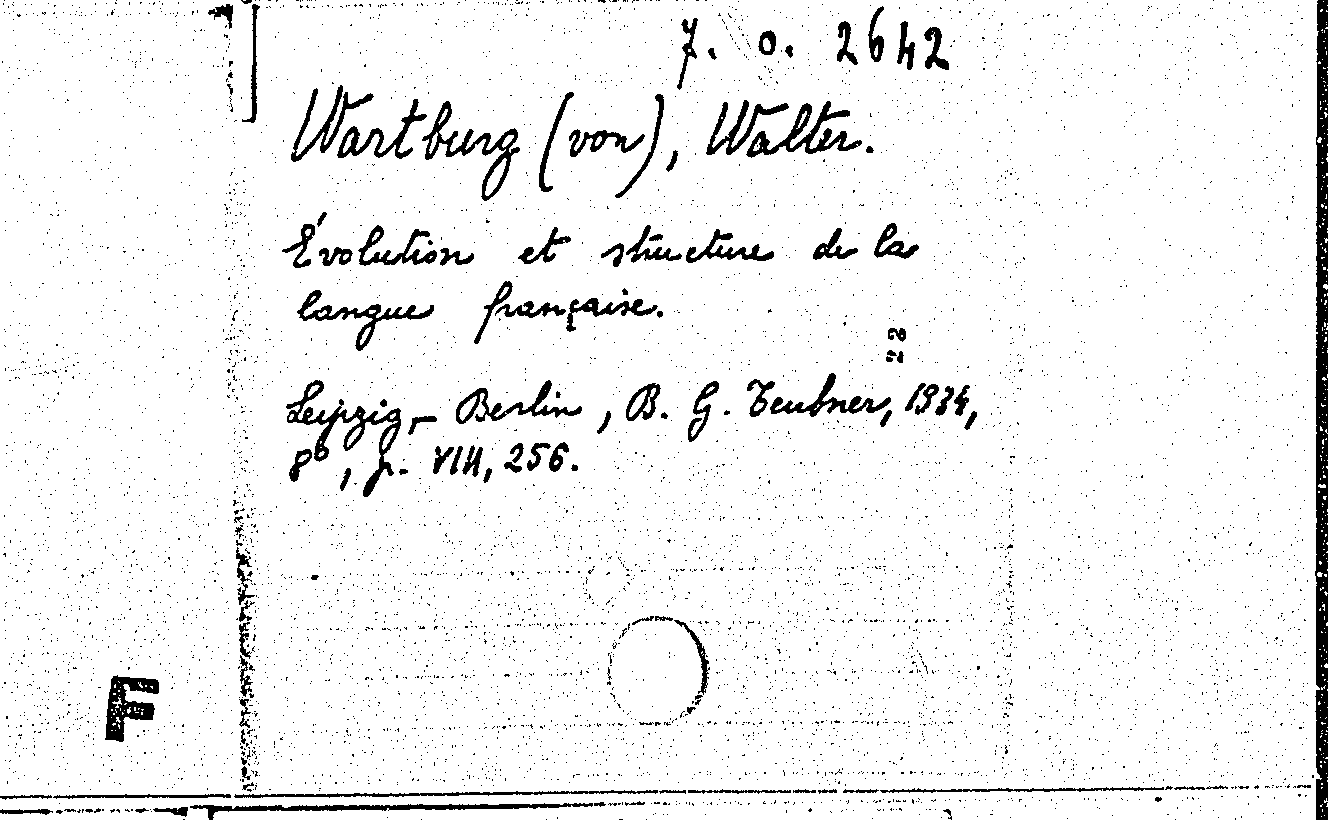 7. 0. 2642
Wartburg (von), Walter.
Évolution et structure de la
langue française.
22
Leipzig, - Berlin, B. G. Teubner, 1934,
8º, p. VIII, 256.
F